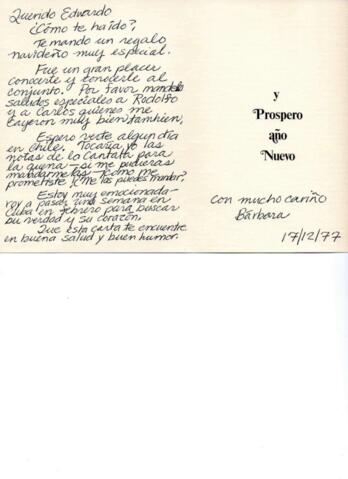 Querido Eduardo
¿Cómo te ha ido?,
Te mando un regalo
navideño muy especial.
Fue un gran placer
conocerte y conocerle al
conjunto. Por favor mandeles
saludos especiales a Rodolfo
y a Carlos quienes me
cayeron muy bien, tambien.
Espero verte algun día
en Chile. Tocaría yo las
notas de la Cantata para
la quena – si me pudieras
mandarmelas – como me
prometiste ¿Me las puedes mandar?
Estoy muy emocionada-
voy a pasar una semana en
Cuba en febrero para buscar
su verdad y su corazón.
Que esta carta te encuentre
en buena salud y buen humor.
y
Prospero
año
Nuevo
con mucho cariño
Bárbara
17/12/77